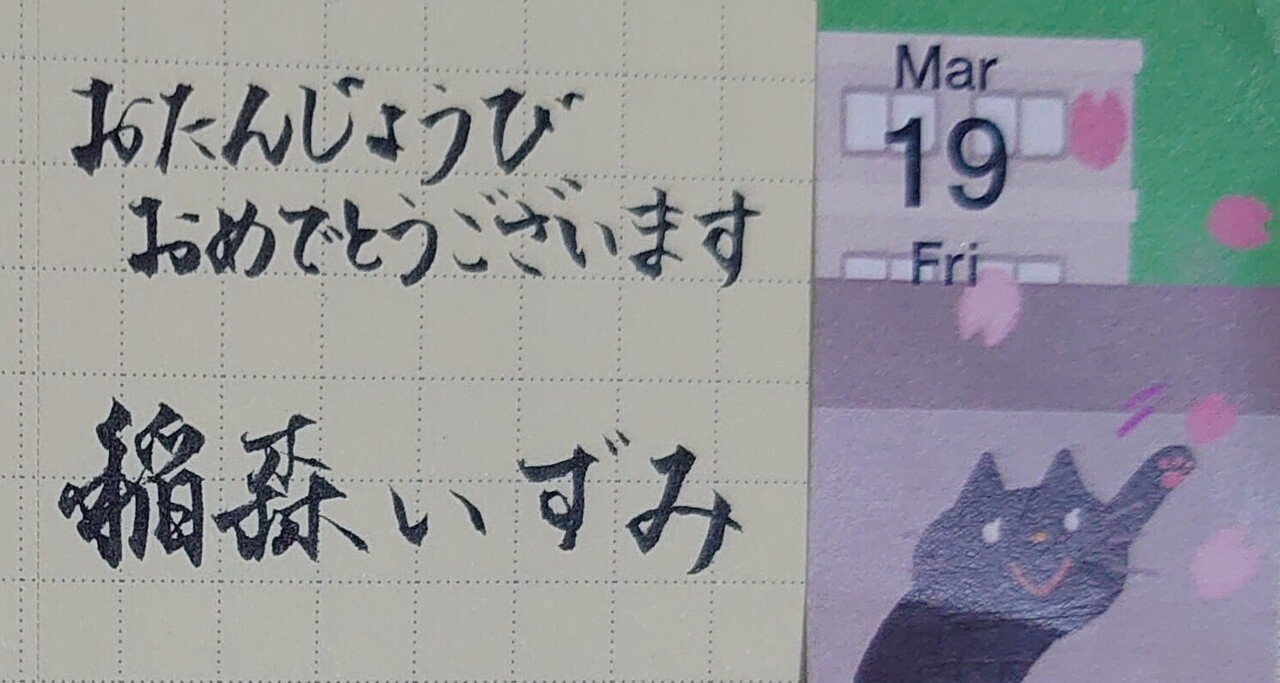 おたんじょうび
おめでとうございます
稲森いずみ
Mar
19
Fri